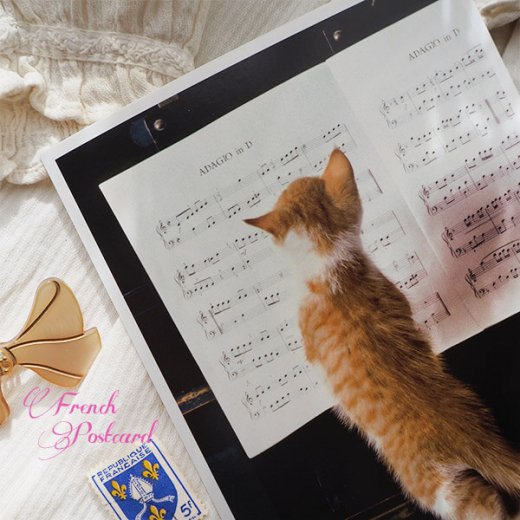 ADAGIO in D
ADAGIO in D
French
Postcard
REPUBLIQUE
FRANÇAISE
5F